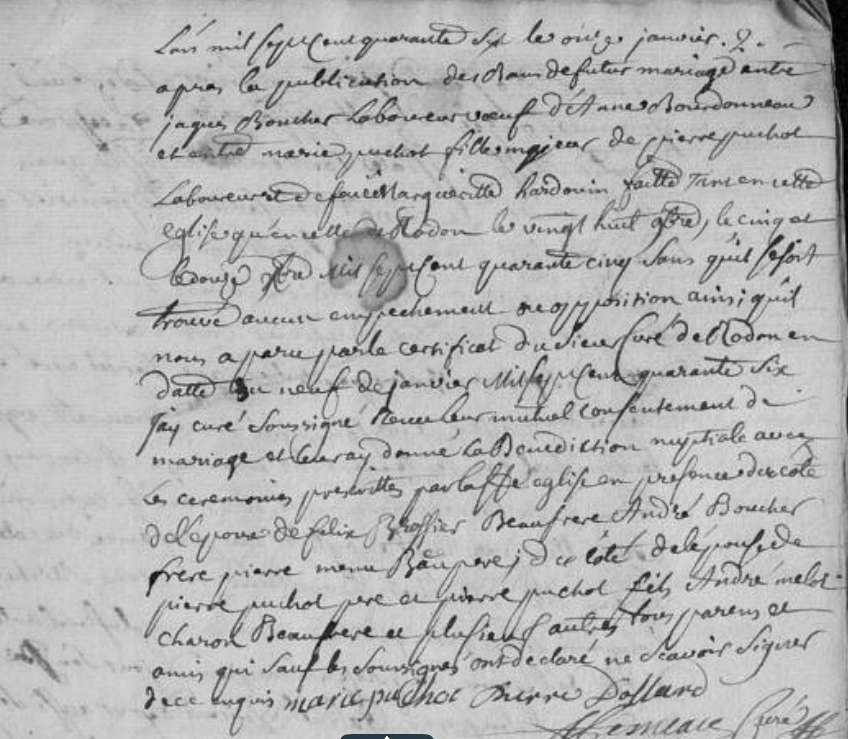 L'an mil sept Cent quarante six le onze janvier
apres la publication des Bans de futur mariage entre
jaques Boucher Laboureur vœuf d'Anne Bourdonneau
et entre marie puchot fille majeur de pierre puchot
Laboureur et de feüe Margueritte hardouin faitte Tant en cette
eglise qu'en celle de Rodon le vingt huit 9bre, le cinq et
le douze xbre Mil sept Cent quarante cinq Sans qu'il se soit
trouvé aucun empechement ou opposition ainsi qu'il
nous a paru par le certificat du Sieur Curé de Rodon en
datte du neuf de janvier Mil sept Cent quarante Six
j'ay curé Soussigné Receu leur mutuel consentement de
mariage et leur ay donné la Benediction nuptiale avec
les ceremonies prescrittes par la ste eglise en presence du côté
de l'epoux de felix Brossier Beaufrere André Boucher
frere pierre menu Beaupere, du côté de l'épouse de
pierre puchot pere et pierre puchot fils André melot
charon Beaufrere et plusieurs autres tous parens et
amis qui sauf les Soussignés ont declaré ne sçavoir Signer
de ce enquis marie puchot Pierre Dollard
Curé